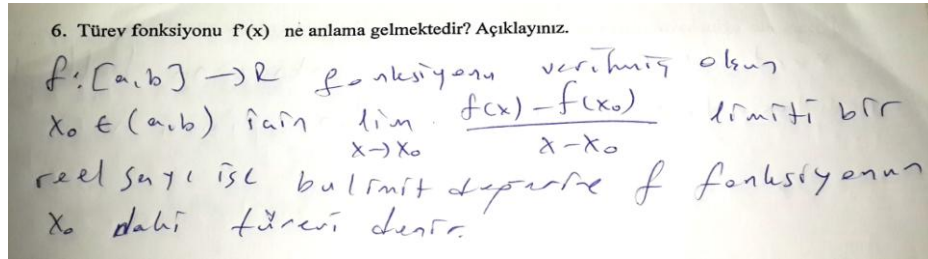 6. Türev fonksiyonu f'(x) ne anlama gelmektedir? Açıklayınız.
f: [a,b] → R fonksiyonu verilmiş olsun
x₀ ∈ (a,b) için lim x→x₀ f(x) - f(x₀) / x - x₀ limiti bir
reel sayı ise bu limit değerine f fonksiyonun
x₀ daki türevi denir.